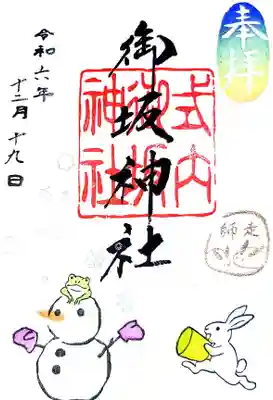 奉拝
御坂神社
式内
御坂
神社
師走
令和六年
十二月十九日